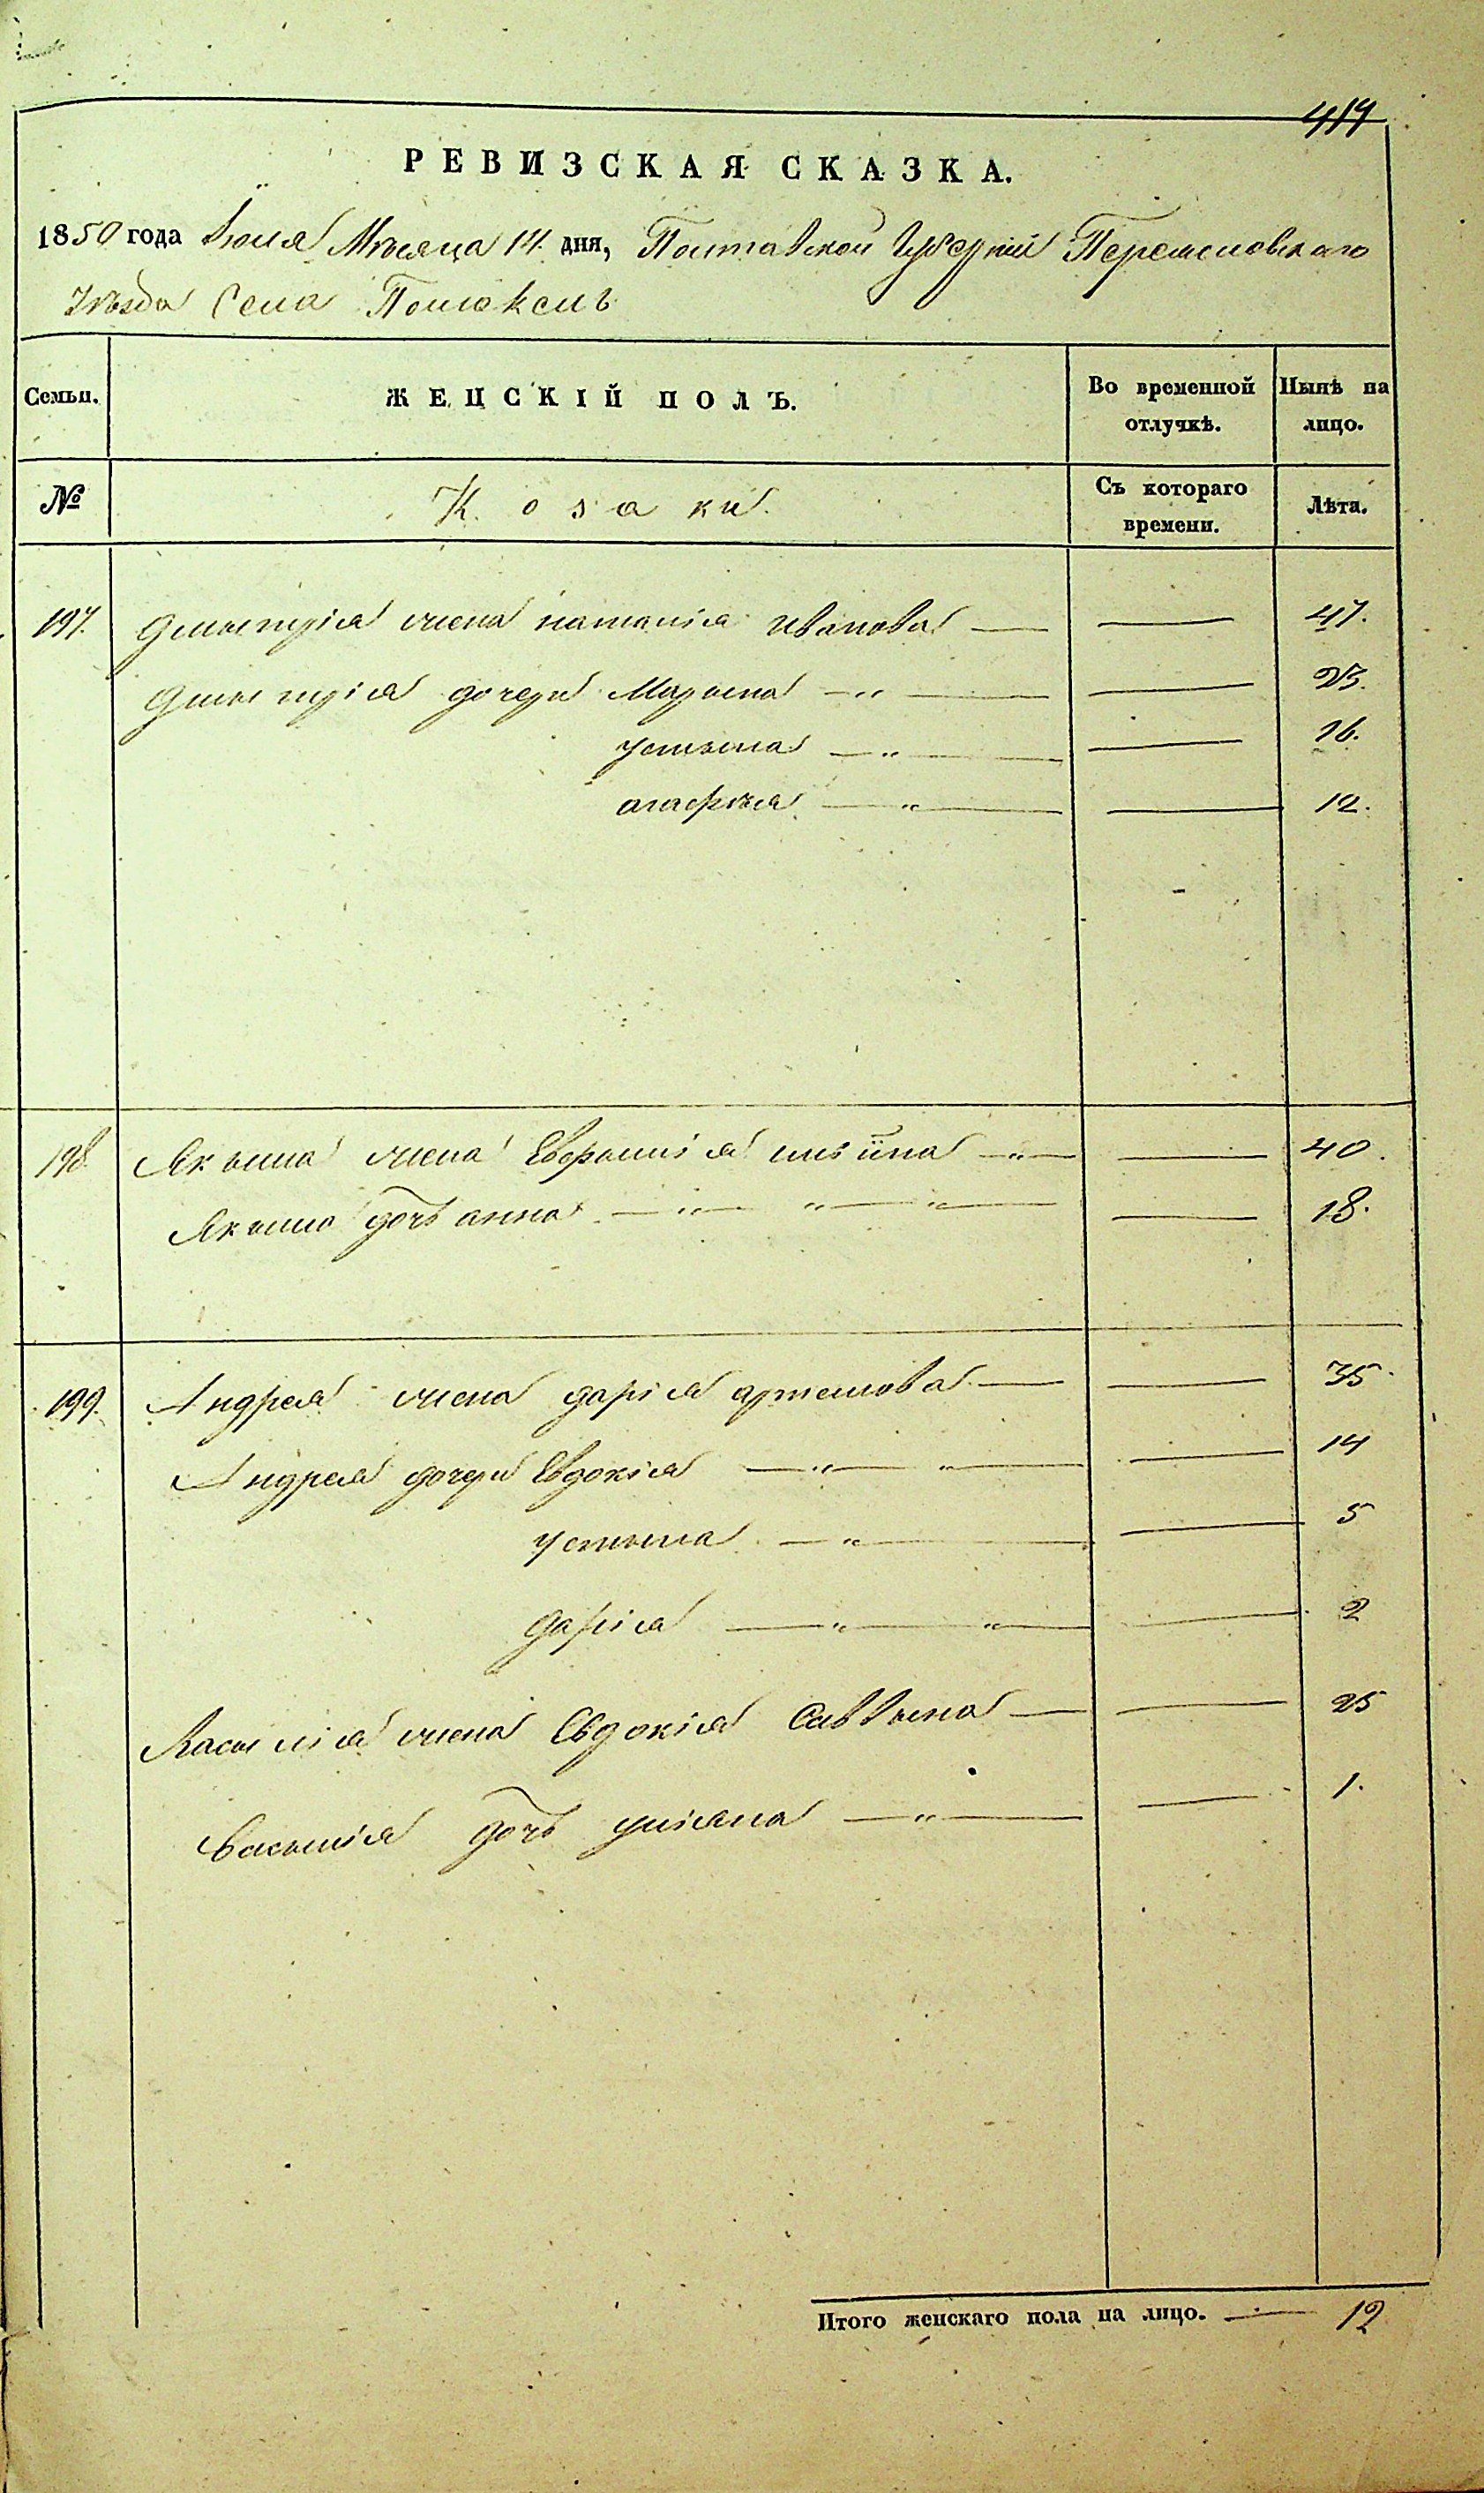 414
РЕВИЗСКАЯ СКАЗКА.
1850 года Іюля Мѣсяца 14. дня, Полтавской Губерніи Переяславскаго
Уѣзда Села
Семьи. ЖЕНСКІЙ ПОЛЪ. Во временной отлучкѣ. Нынѣ на лицо.
№ Козаки. Съ котораго времени. Лѣта.
197. Дмытрія жена наталія иванова — — 47.
Дмытрія дочери Марына — „ — — 23.
устына — „ — — 16.
агафія — „ — — 12.
198. Якыма жена Евфымія — „ — — 40.
Якыма дочь анна — „ — „ — „ — — 18.
199. Андрея жена дарія артемова — — 35.
Андрея дочери Евдокія — „ — „ — — 14
устына — „ — — 5
дарія — „ — „ — — 2
Васылія жена Евдокія Саввына — — 25
Васылія дочь уліяна — „ — — 1.
Итого женскаго пола на лицо. — 12